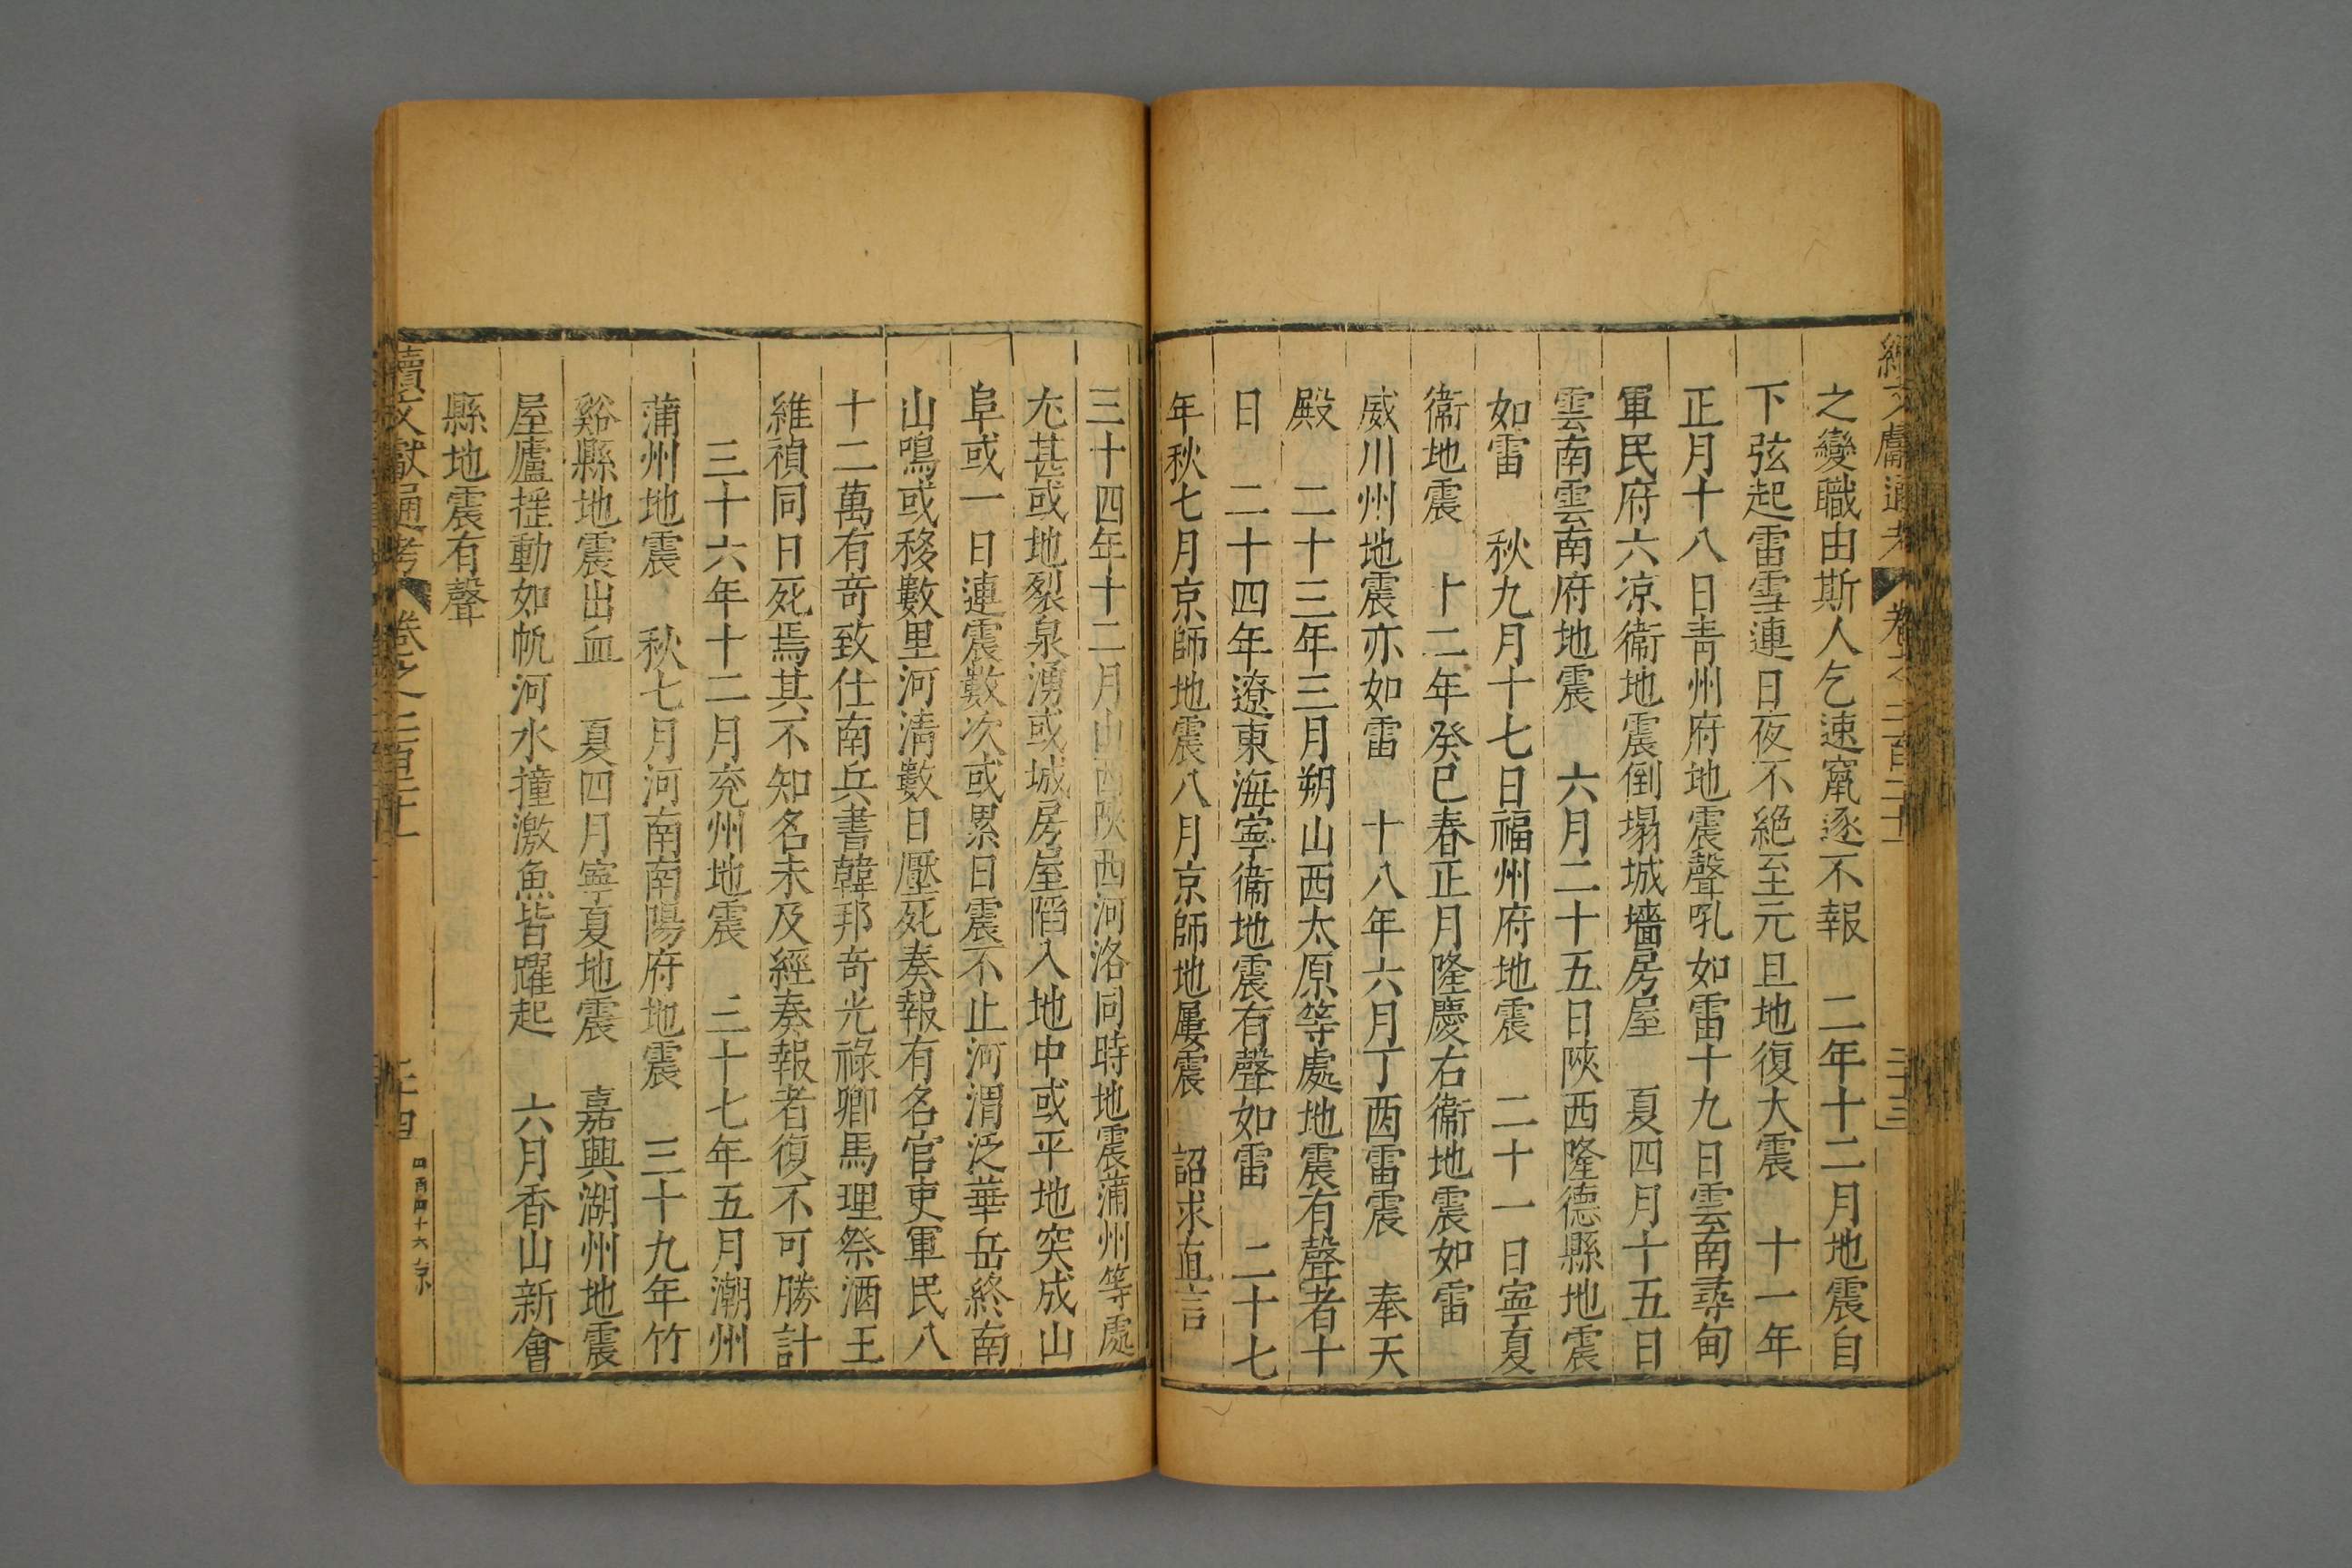 續文獻通考 卷之二百二十一 二十三
之變職由斯人乞速竄逐不報 二年十二月地震自
下弦起雷雪連日夜不絕至元旦地復大震 十一年
正月十八日青州府地震聲吼如雷十九日雲南尋甸
軍民府六凉衞地震倒塌城墻房屋 夏四月十五日
雲南雲南府地震 六月二十五日陜西隆德縣地震
如雷 秋九月十七日福州府地震 二十一日寧夏
衞地震 十二年癸巳春正月隆慶右衞地震如雷
威川州地震亦如雷 十八年六月丁酉雷震 奉天
殿 二十三年三月朔山西太原等處地震有聲者十
日 二十四年遼東海寧衞地震有聲如雷 二十七
年秋七月京師地震八月京師地屢震 詔求直言
三十四年十二月山西陜西河洛同時地震蒲州等處
尤甚或地裂泉湧或城房屋陷入地中或平地突成山
阜或一日連震數次或累日震不止河渭泛華岳終南
山鳴或移數里河清數日壓死奏報有名官吏軍民八
十二萬有竒致仕南兵書韓邦竒光祿卿馬理祭酒王
維禎同日死焉其不知名未及經奏報者復不可勝計
三十六年十二月兖州地震 三十七年五月潮州
蒲州地震 秋七月河南南陽府地震 三十九年竹
谿縣地震出血 夏四月寧夏地震 嘉興湖州地震
屋廬搖動如帆河水撞激魚皆躍起 六月香山新會
縣地震有聲
續文獻通考 卷之二百二十一 二十四 四百四十六 京